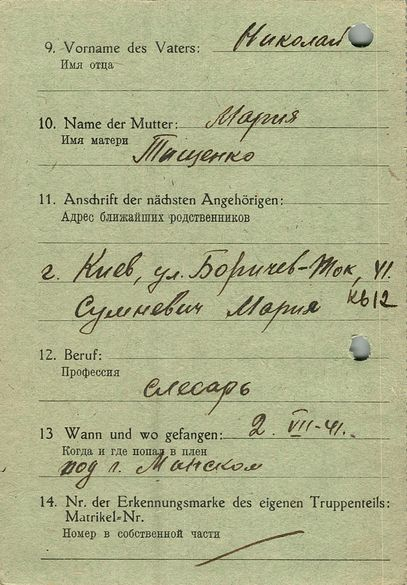 9. Vorname des Vaters: Николай
Имя отца
10. Name der Mutter: Мария
Имя матери
Тищенко
11. Anschrift der nächsten Angehörigen:
Адрес ближайших родственников
г. Киев, ул. Боричев-Ток,
Сумневич Мария кв 12
12. Beruf:
Профессия
слесарь
13 Wann und wo gefangen: 2. VII-41.
Когда и где попал в плен
под г. Минском
14. Nr. der Erkennungsmarke des eigenen Truppenteils:
Matrikel-Nr.
Номер в собственной части